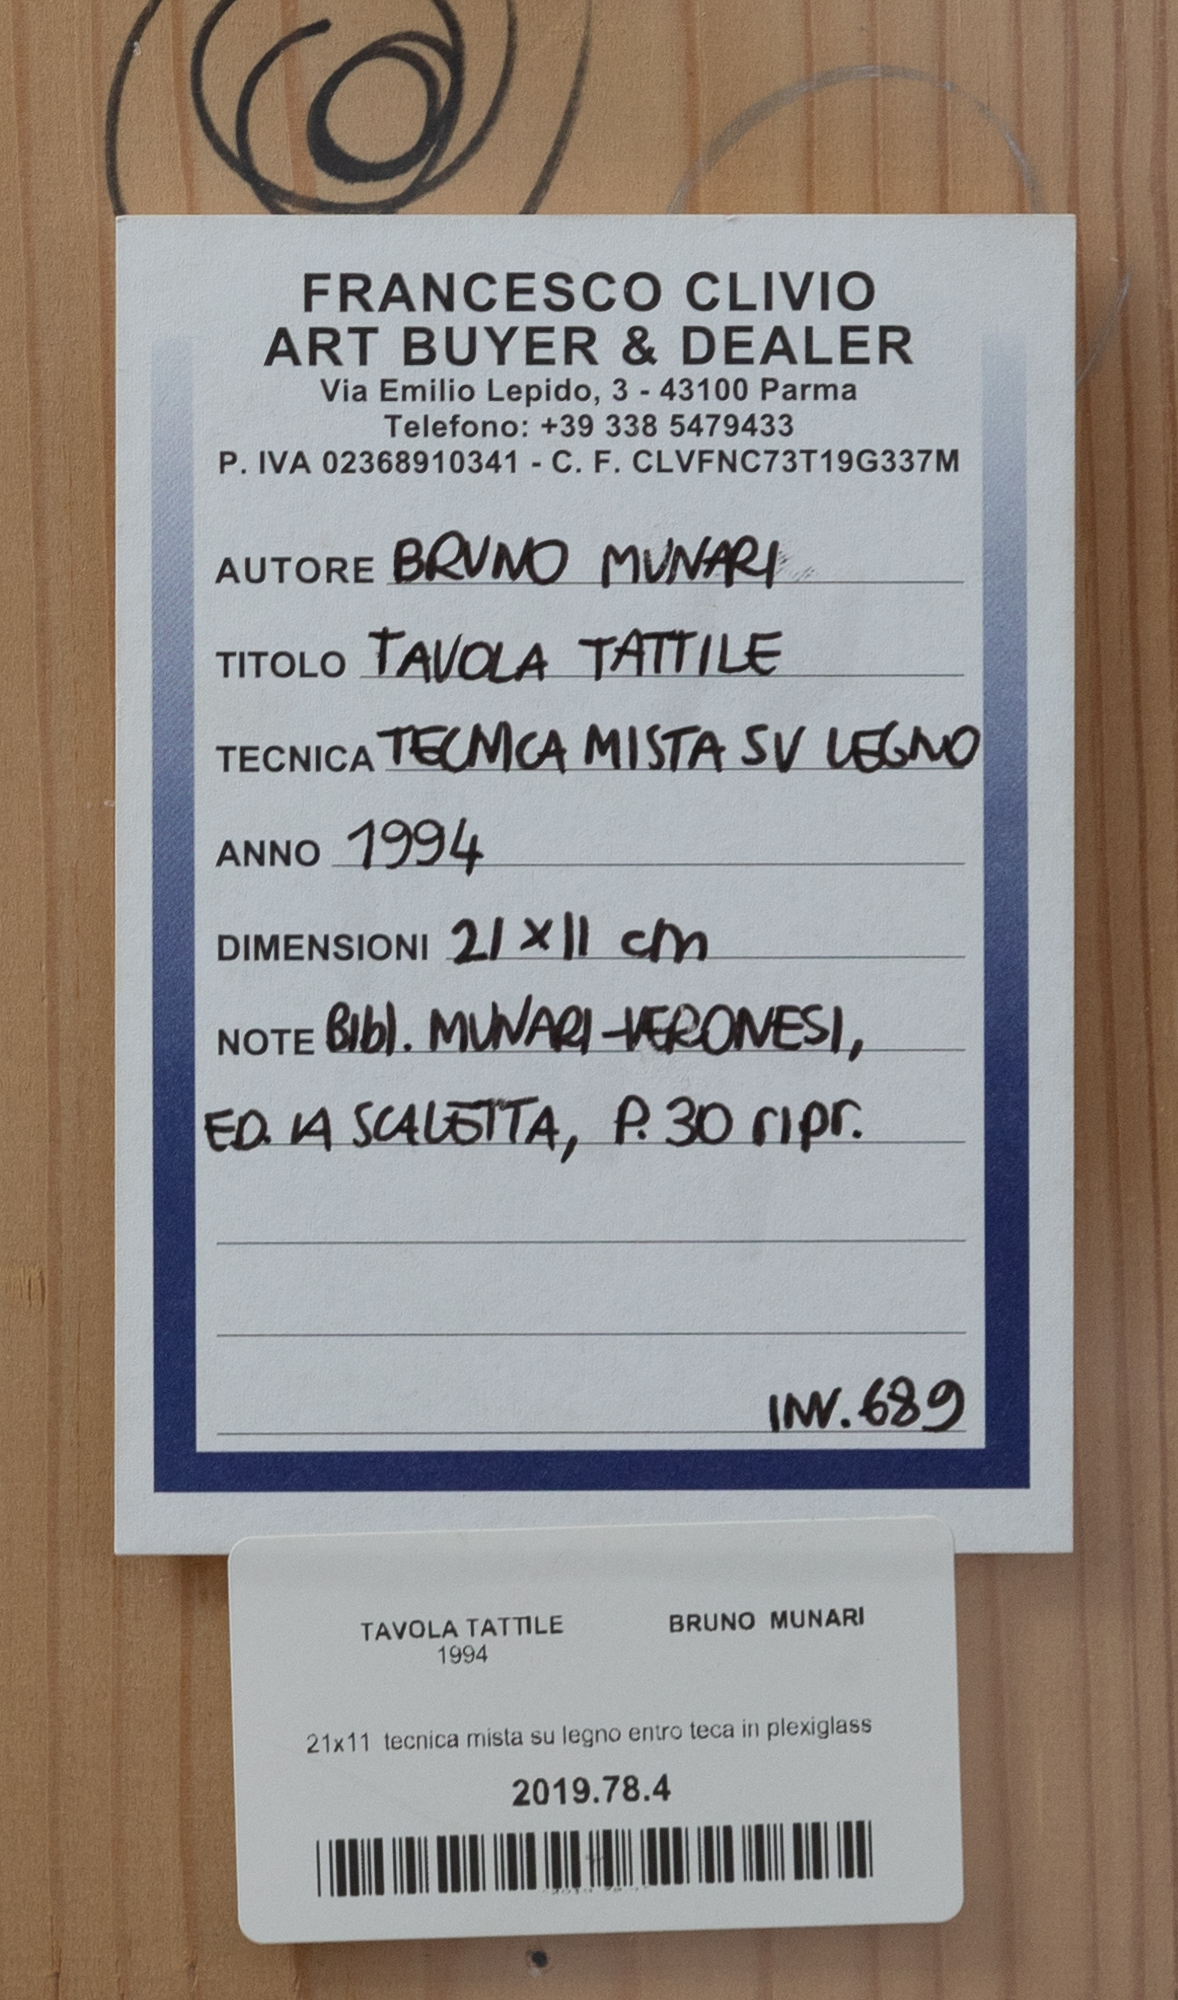 FRANCESCO CLIVIO
ART BUYER & DEALER
Via Emilio Lepido, 3 - 43100 Parma
Telefono: +39 338 5479433
P. IVA 02368910341 - C. F. CLVFNC73T19G337M
AUTORE BRUNO MUNARI
TITOLO TAVOLA TATTILE
TECNICA TECNICA MISTA SU LEGNO
ANNO 1994
DIMENSIONI 21 x 11 cm
NOTE Bibl. MUNARI-VERONESI,
ED. LA SCALETTA, P. 30 ripr.
INV. 689
TAVOLA TATTILE BRUNO MUNARI
1994
21x11 tecnica mista su legno entro teca in plexiglass
2019.78.4